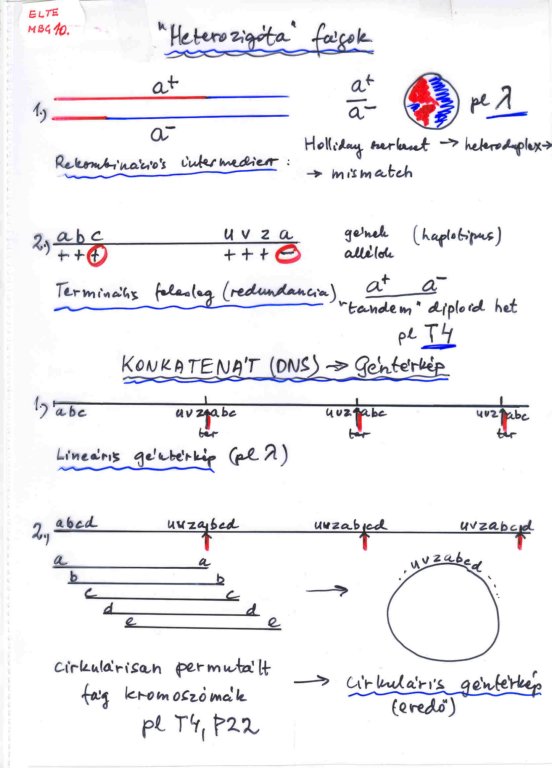 ELTE
MBG10.
"Heterozigóta" fágok
1.,
a+
a-
a+
a-
pl λ
Holliday szerkezet → heteroduplex →
→ mismatch
Rekombinációs intermedier:
2.,
a b c u v z a
+ + + + + + -
gének (haplotipus)
allélok
Terminális felesleg (redundancia)
a+ a-
"tandem" diploid het
pl T4
KONKATENÁT (DNS) → Géntérkép
1.,
abc uvz abc uvz abc uvz abc
ter ter ter
Lineáris géntérkép (pl λ)
2.,
abcd uvzabcd uvzabcd uvzabcd
a a
b b
c c
d d
e e
→
uvzabcd
cirkulárisan permutált
fág kromoszómák
pl T4, P22
→ Cirkuláris géntérkép
(eredő)